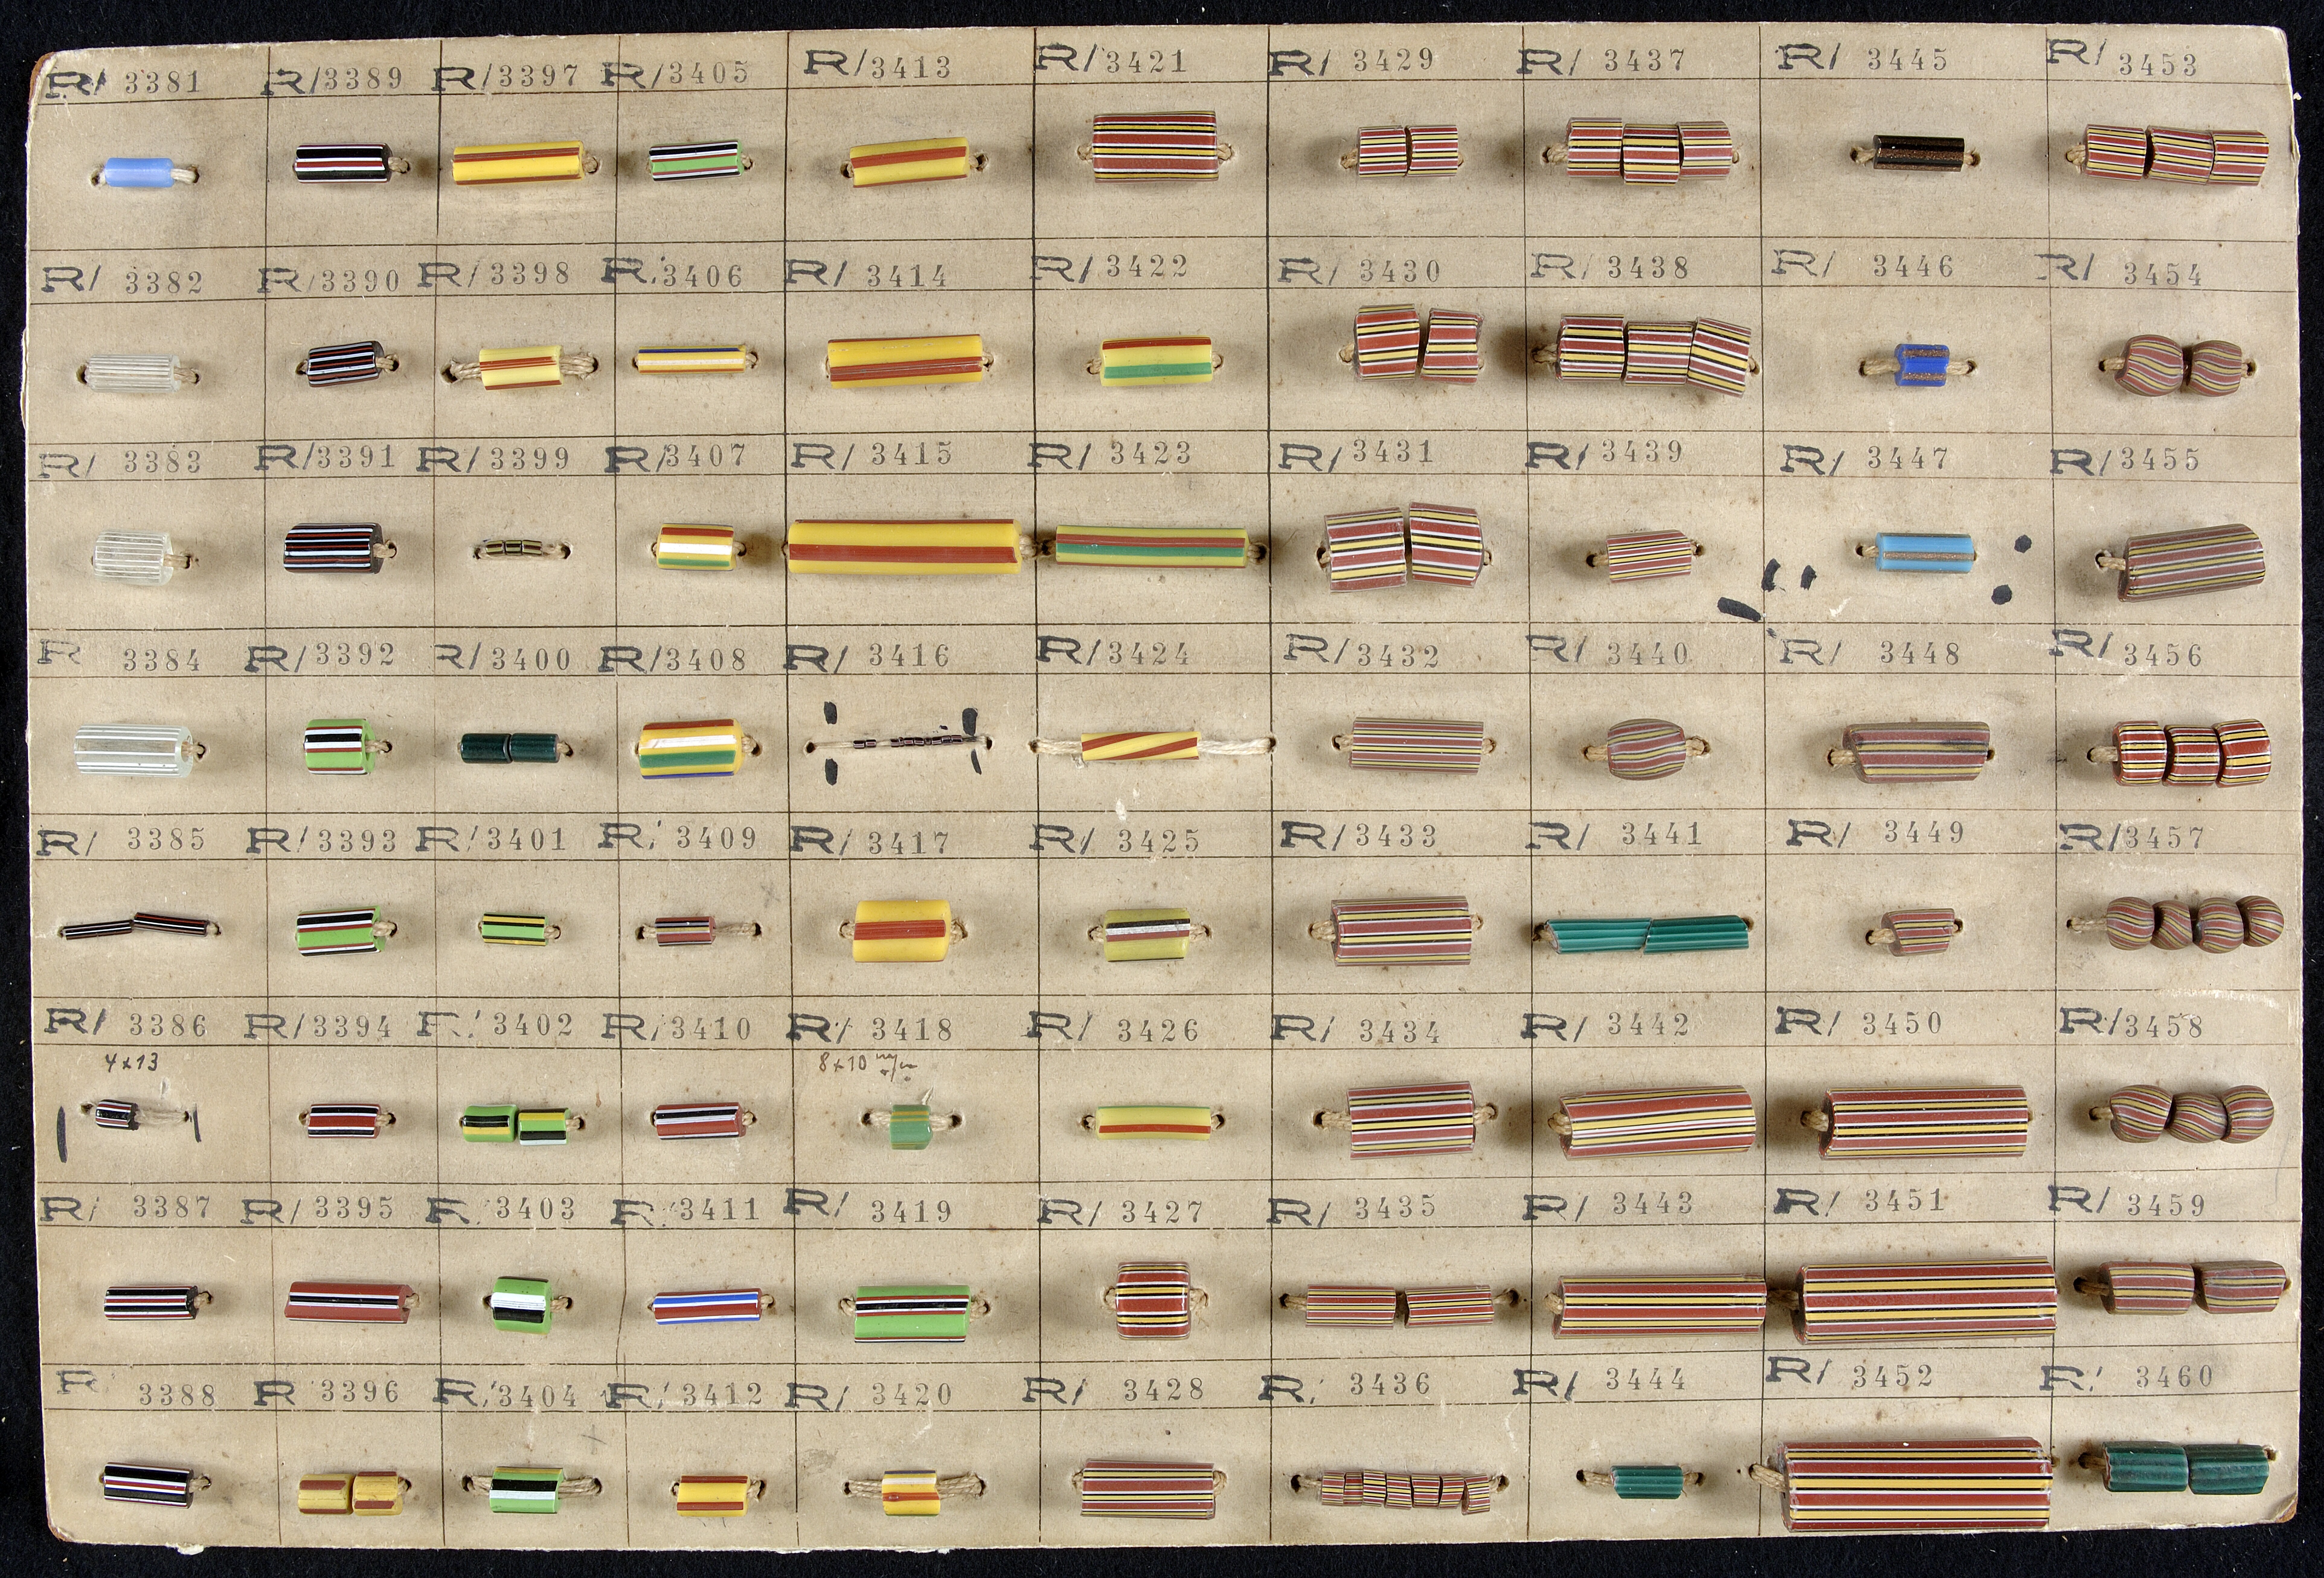 R/ 3381 R/3389 R/3397 R/3405 R/3413 R/3421 R/ 3429 R/ 3437 R/ 3445 R/ 3453
R/ 3382 R/3390 R/3398 R/3406 R/ 3414 R/ 3422 R/ 3430 R/ 3438 R/ 3446 R/ 3454
R/ 3383 R/3391 R/3399 R/3407 R/ 3415 R/ 3423 R/ 3431 R/ 3439 R/ 3447 R/3455
R 3384 R/3392 R/3400 R/3408 R/ 3416 R/3424 R/3432 R/ 3440 R/ 3448 R/ 3456
R/ 3385 R/3393 R/3401 R/ 3409 R/ 3417 R/ 3425 R/3433 R/ 3441 R/ 3449 R/3457
R/ 3386 R/3394 R/ 3402 R/3410 R/ 3418 R/ 3426 R/ 3434 R/ 3442 R/ 3450 R/3458
4x13 8x10 m/m
R/ 3387 R/ 3395 R/ 3403 R/3411 R/ 3419 R/ 3427 R/ 3435 R/ 3443 R/ 3451 R/ 3459
R 3388 R 3396 R/3404 R/ 3412 R/ 3420 R/ 3428 R/ 3436 R/ 3444 R/ 3452 R/ 3460